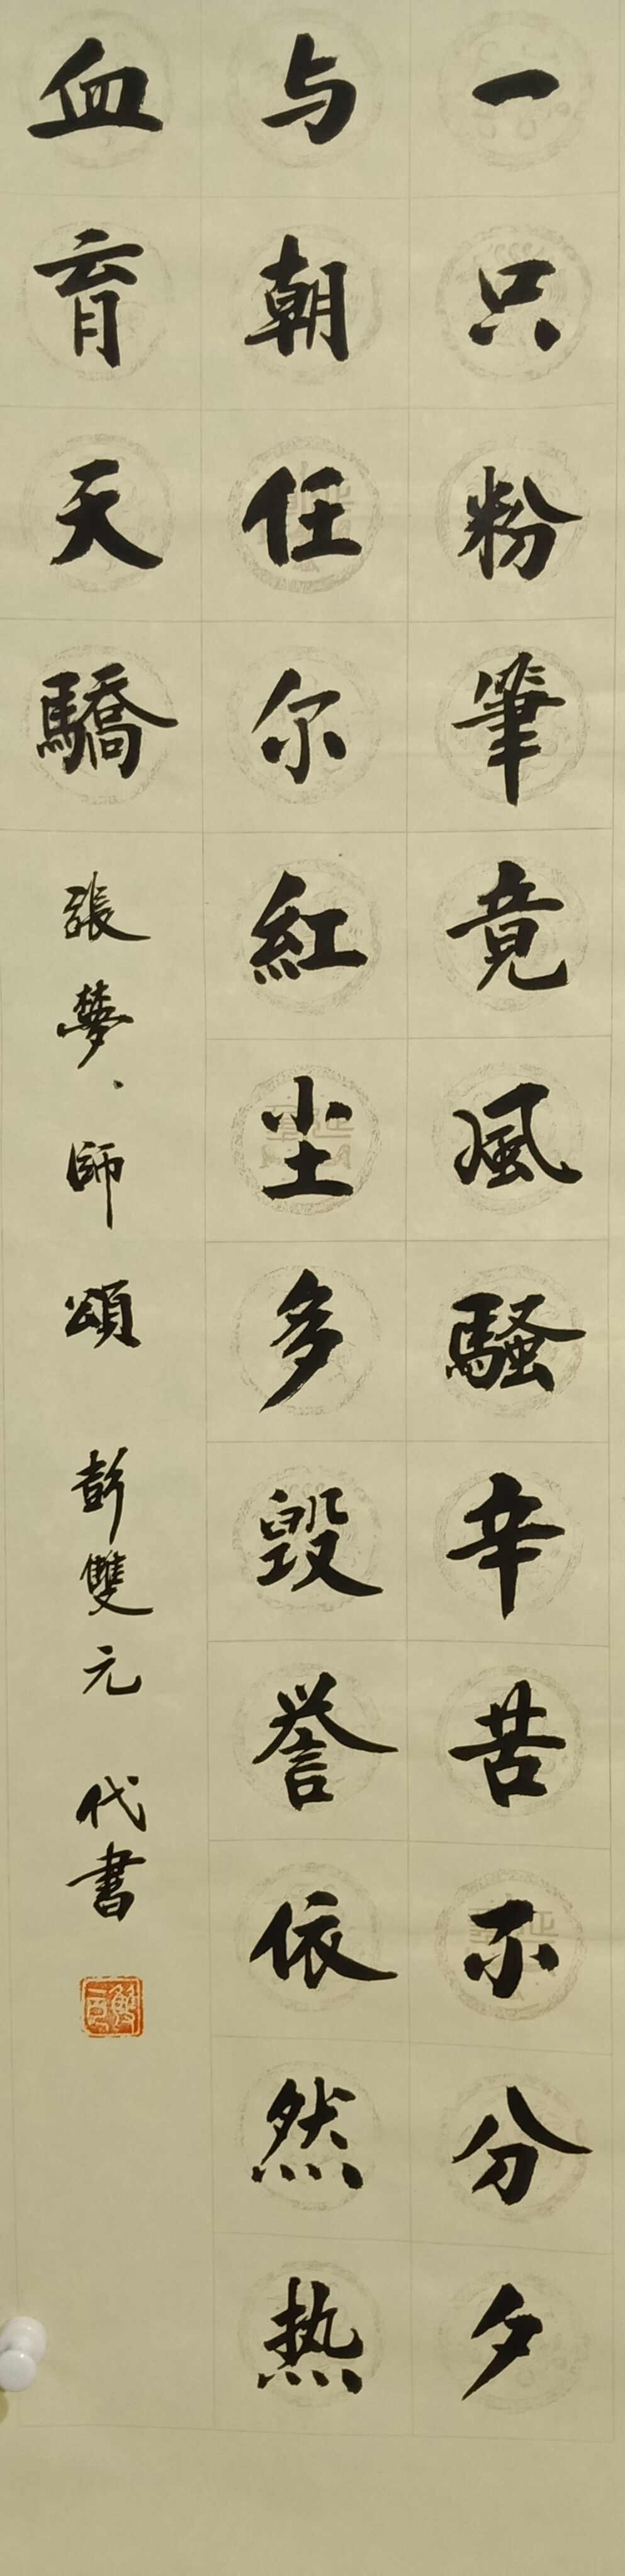 一只粉筆竟風騷辛苦不分夕
与朝任尔紅尘多毁誉依然热
血育天驕
張夢、師頌 彭雙元 代書